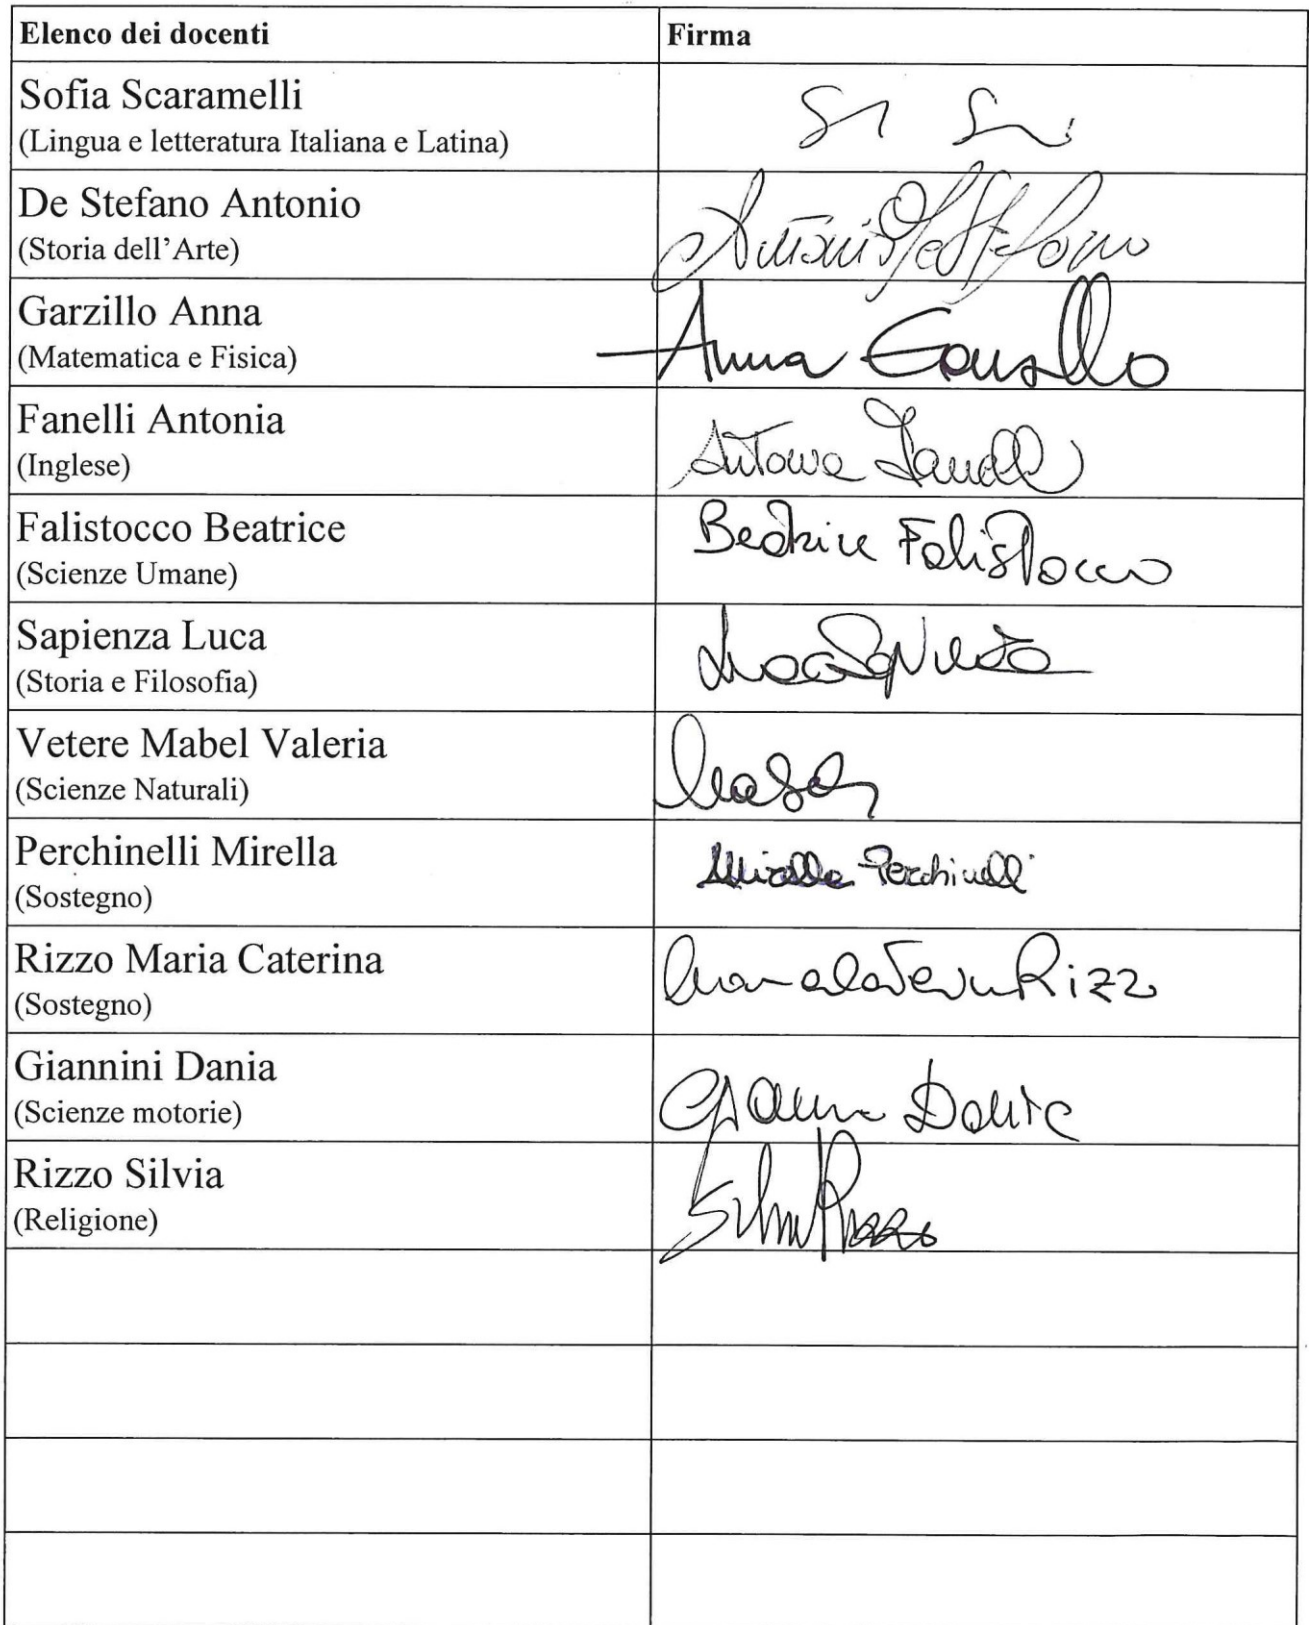 Elenco dei docenti
Firma
Sofia Scaramelli
(Lingua e letteratura Italiana e Latina)
De Stefano Antonio
(Storia dell'Arte)
Antonio De Stefano
Garzillo Anna
(Matematica e Fisica)
Anna Garzillo
Fanelli Antonia
(Inglese)
Antonia Fanelli
Falistocco Beatrice
(Scienze Umane)
Beatrice Falistocco
Sapienza Luca
(Storia e Filosofia)
Luca Sapienza
Vetere Mabel Valeria
(Scienze Naturali)
Perchinelli Mirella
(Sostegno)
Mirella Perchinelli
Rizzo Maria Caterina
(Sostegno)
Rizzo
Giannini Dania
(Scienze motorie)
Dania
Rizzo Silvia
(Religione)
Silvia Rizzo